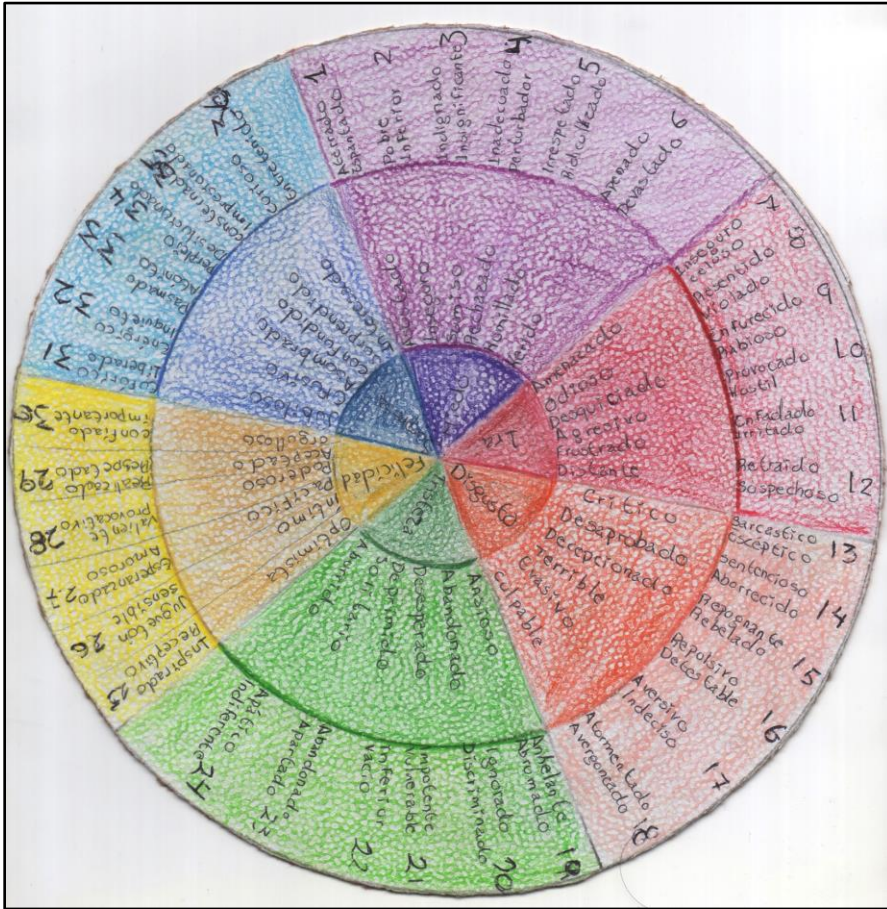 Miedo
Ira
Disgusto
Tristeza
Felicidad
Asustado
Inseguro
Sumiso
Rechazado
Humillado
Herido
Amenazado
Odioso
Desquiciado
Agresivo
Frustrado
Distante
Critico
Desaprobado
Decepcionado
Terrible
Evasivo
Culpable
Ansioso
Abandonado
Desesperado
Deprimido
Solitario
Aburrido
Optimista
intimo
Pacifico
Poderoso
Aceptado
orgulloso
confundido
Sorprendido
Interesado
1
Espantado
2
Pobre
Inferior
3
Indignado
Insignificante
4
Inadecuado
Perturbador
5
Irrespetado
Ridiculizado
6
Apenado
Devastado
7
Inseguro
Celoso
8
Resentido
Violado
9
Enfurecido
Rabioso
10
Provocado
Hostil
11
Enfadado
Irritado
12
Retraido
Sospechoso
13
Sarcastico
Escéptico
14
Sentencioso
Aborrecido
15
Repugnante
Rebelado
16
Repulsivo
Detestable
17
Aversivo
Indeciso
18
Atormentado
Avergonzado
19
Anhelante
Abrumado
20
Ignorado
Discriminado
21
Impotente
Vulnerable
22
Inferior
Vacio
Abandonado
Apartado
24
Apático
Indiferente
Inspirado
Receptivo
26
Juguetón
sensible
27
Esperanzado
Amoroso
28
Valiente
provocativo
29
Realizado
Respetado
confiado
importante
31
Euforico
Liberado
32
Energico
inquieto
Pasmado
Atónito
Perplejo
Desilucionado
impresionado
Curioso
Entretenido